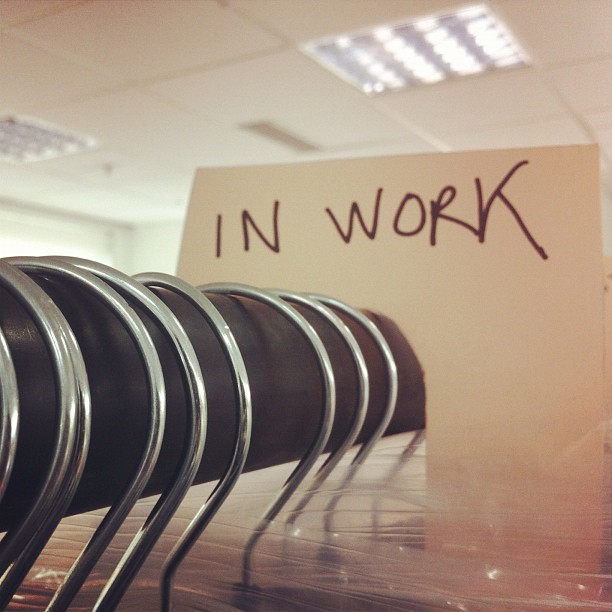 IN WORK